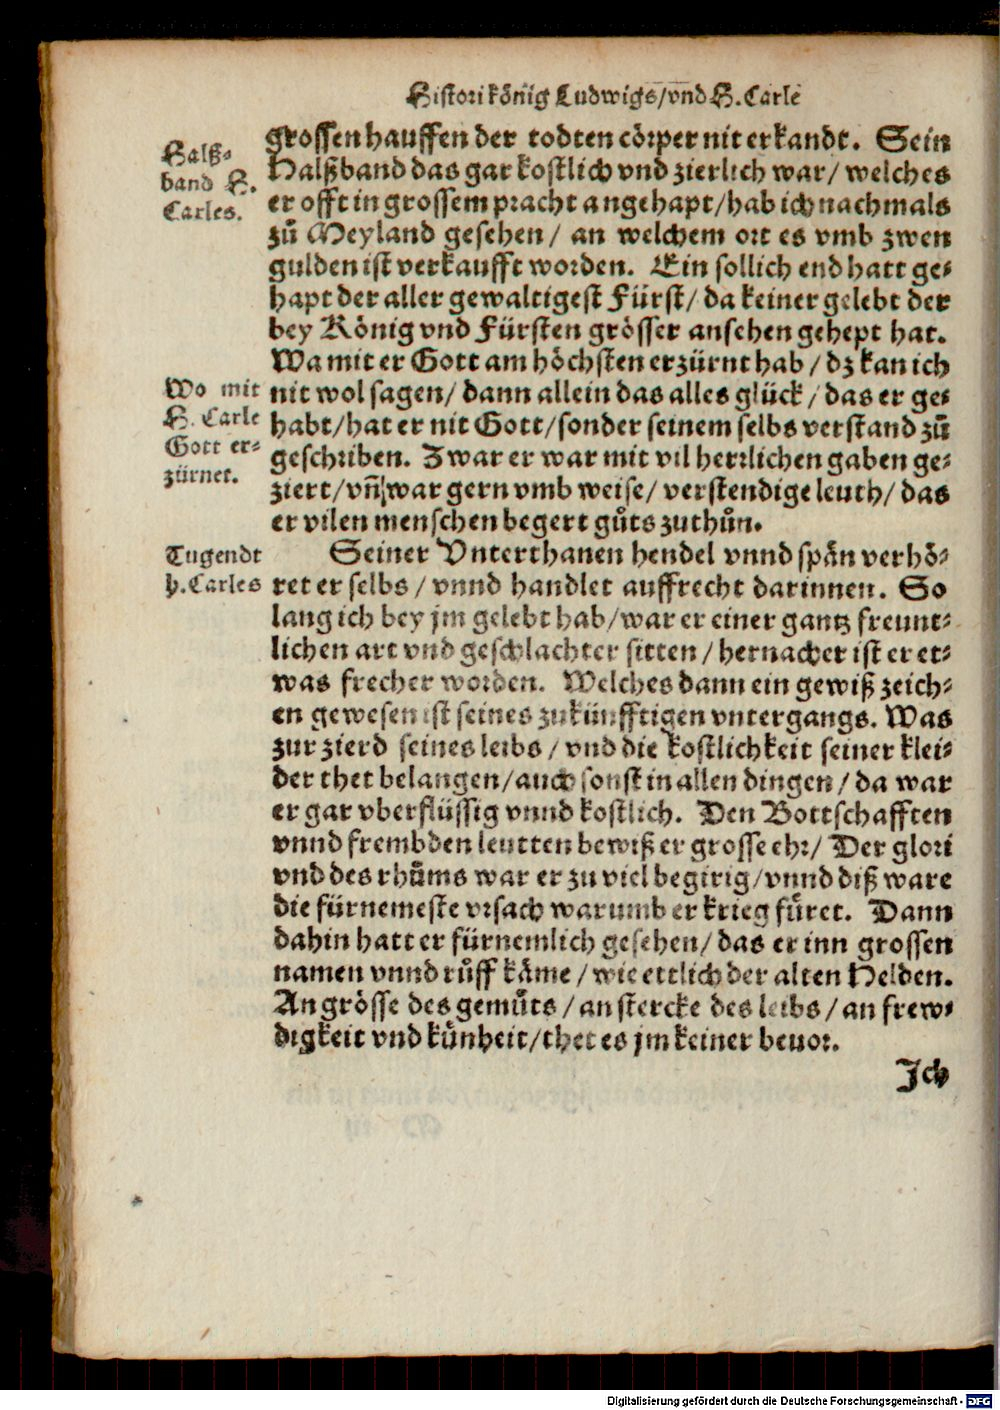 Histori kőnig Ludwigs/vnd H. Carle
Halß-
band H.
Carles.
grossen hauffen der todten cörper nit erkandt. Sein
Halßband das gar kostlich vnd zierlich war/ welches
er offt in grossem pracht angehapt/hab ich nachmals
zů Meyland gesehen/ an welchem ort es vmb zwen
gulden ist verkaufft worden. Ein sollich end hatt ge-
hapt der aller gewaltigest Fürst/ da keiner gelebt der
bey König vnd Fürsten grösser ansehen gehept hat.
Wa mit er Gott am höchsten erzürnt hab/ dz kan ich
Wo mit
H. Carle
Gott er-
zürnet.
nit wol sagen/ dann allein das alles glück/ das er ge-
habt/hat er nit Gott/sonder seinem selbs verstand zů
geschriben. Zwar er war mit vil herrlichen gaben ge-
ziert/vñ war gern vmb weise/ verstendige leuth/ das
er vilen menschen begert gůts zuthůn.
Tugendt
h. Carles
Seiner Vnterthanen hendel vnnd spån verhö-
ret er selbs/ vnnd handlet auffrecht darinnen. So
lang ich bey jm gelebt hab/war er einer gantz freunt-
lichen art vnd geschlachter sitten/ hernacher ist er et-
was frecher worden. Welches dann ein gewiß zeich-
en gewesen ist seines zukünfftigen vntergangs. Was
zur zierd seines leibs/ vnd die kostlichkeit seiner klei-
der thet belangen/auch sonst in allen dingen/ da war
er gar vberflüssig vnnd kostlich. Den Bottschafften
vnnd frembden leutten bewiß er grosse ehr/ Der glori
vnd des rhůms war er zu viel begirig/vnnd diß ware
die fürnemeste vrsach warumb er krieg füret. Dann
dahin hatt er fürnemlich gesehen/ das er inn grossen
namen vnnd růff käme/ wie ettlich der alten Helden.
An grösse des gemůts/ an stercke des leibs/ an frew-
digkeit vnd künheit/thet es jm keiner beuor.
Ich
Digitalisierung gefördert durch die Deutsche Forschungsgemeinschaft - DFG